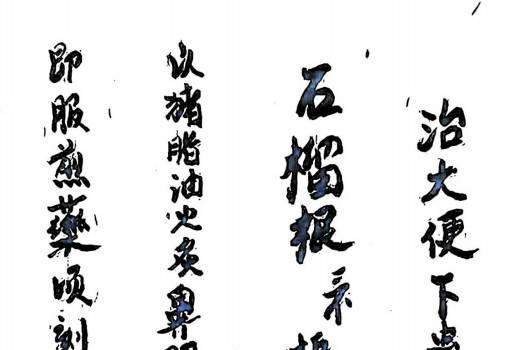 治大便下
石榴根
以猪脂油火炙鼻
即服煎藥頃刻